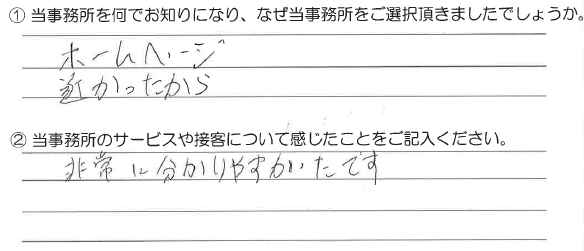 ① 当事務所を何でお知りになり、なぜ当事務所をご選択頂きましたでしょうか。
ホームページ
近かったから
② 当事務所のサービスや接客について感じたことをご記入ください。
非常に分かりやすかったです